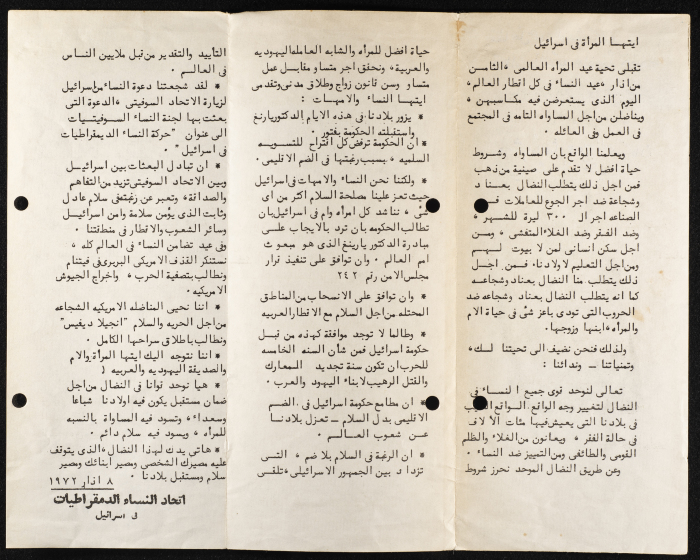 ايتها المرأة في اسرائيل
تقبلي تحية عيد المرأه العالمي ٨ الثامن
من اذار ٨ عيد النساء في كل اقطار العالم ٨
اليوم الذي يستعرضن فيه مكاسبهن ٨
ويناضلن من اجل المساواه التامه في المجتمع
في العمل وفي العائله ٠
ويعلمنا الواقع بان المساواه وشروط
حياة افضل لا تقدم على صينية من ذهب
فمن اجل ذلك يتطلب النضال بعناد
وشجاعة ضد اجر الجوع للعاملات في
الصناعه اجر ال ٣٠٠ ليرة للشهر ٨
وضد الفقر وضد الغلاء المتفشي ٨ ومن
اجل سكن انساني لمن لا بيوت لهم
ومن اجل التعليم لاولادنا ٨ فمن اجل
ذلك يتطلب منا النضال بعناد وشجاعه
كما انه يتطلب النضال بعناد وشجاعه ضد
الحرب التي تودي باعز شئ في حياة الام
والمرأه ٨ ابنها وزوجها ٠
ولذلك فنحن نضيف الى تحيتنا لك ٨
وتمنياتنا ــ وندائنا :
تعالي لنوحد قوى جميع النساء في
النضال لتغيير وجه الواقع ٠ الواقع
في بلادنا التي يعيش فيها مئات الآلاف
في حالة الفقر ٨ ويعانون من الغلاء والظلم
القومي والطائفي ومن التمييز ضد النساء ٠
وعن طريق النضال الموحد نحرز شروط
حياة افضل للمرأه والشابه العامله اليهوديه
والعربية ٨ ونحقق اجر متساو مقابل عمل
متساو وسن قانون زواج وطلاق مدني وتقدمي
ايتها النساء والامهات :
* يزور بلادنا في هذه الايام الدكتور يارنغ
واستقبلته الحكومة بفتور ٠
* ان الحكومة ترفض كل اقتراح للتسويه
السلميه ٨ بسبب رغبتها في الضم الاقليمي ٠
* ولكننا نحن النساء والامهات في اسرائيل
حيث تعز علينا مصلحة السلام اكثر من اى
شئ ٨ نناشد كل امرأه وام في اسرائيل بان
تطالب الحكومه بان ترد بالايجاب على
مبادرة الدكتور يارينغ الذي هو مبعوث
امم العالم ٠ وان توافق على تنفيذ قرار
مجلس الامن رقم ٢٤٢
* وان توافق على الانسحاب من المناطق
المحتله من اجل السلام مع الاقطار العربيه
* وطالما لا توجد موافقة كهذه من قبل
حكومة اسرائيل فمن شأن السنه الخامسه
للحرب ان تكون سنة تجديد المعارك
والقتل الرهيب لابناء اليهود والعرب ٠
* ان مطامع حكومة اسرائيل في الضم
الاقليمي بدل السلام ــ تعزل بلادنا
عن شعوب العالم ٠
* ان الرغبة في السلام بلا ضم ٨ التي
تزداد بين الجمهور الاسرائيلي ٨ تلقى
التأييد والتقدير من قبل ملايين الناس
في العالم ٠
* لقد شجعتنا دعوة النساء من اسرائيل
لزيارة الاتحاد السوفيتي ٨ الدعوة التي
بعثت بها لجنة النساء السوفيتيات
الى عنوان "حركة النساء الديمقراطيات
في اسرائيل" ٠
* ان تبادل البعثات بين اسرائيل
وبين الاتحاد السوفيتي تزيد من التفاهم
والصداقة ٨ وتعبر عن رغبتنا في سلام عادل
وثابت الذي يؤمن سلامة وامن اسرائيل
وسائر الشعوب والاقطار في منطقتنا ٠
وفي عيد تضامن النساء في العالم كله ٨
نستنكر القذف الامريكي البربري في فيتنام
ونطالب بتصفية الحرب ٨ واخراج الجيوش
الامريكيه ٠
* اننا نحيي المناضله الامريكيه الشجاعه
من اجل الحريه والسلام "انجيلا ديفيس"
ونطالب باطلاق سراحها الكامل ٠
* اننا نتوجه اليك ايتها المرأة والام
والصديقة اليهوديه والعربيه (
* هيا نوحد قوانا في النضال من اجل
ضمان مستقبل يكون فيه اولادنا شباعا
وسعداء ٨ وتسود فيه المساواة بالنسبه
للمرأه ٨ ويسود فيه سلام دائم ٠
* هاتي يدك لهذا النضال ٨ الذي يتوقف
عليه مصيرك الشخصي ومصير ابنائك ومصير
سلام ومستقبل بلادنا ٠
٨ اذار ١٩٧٢
اتحاد النساء الدمقراطيات
في اسرائيل